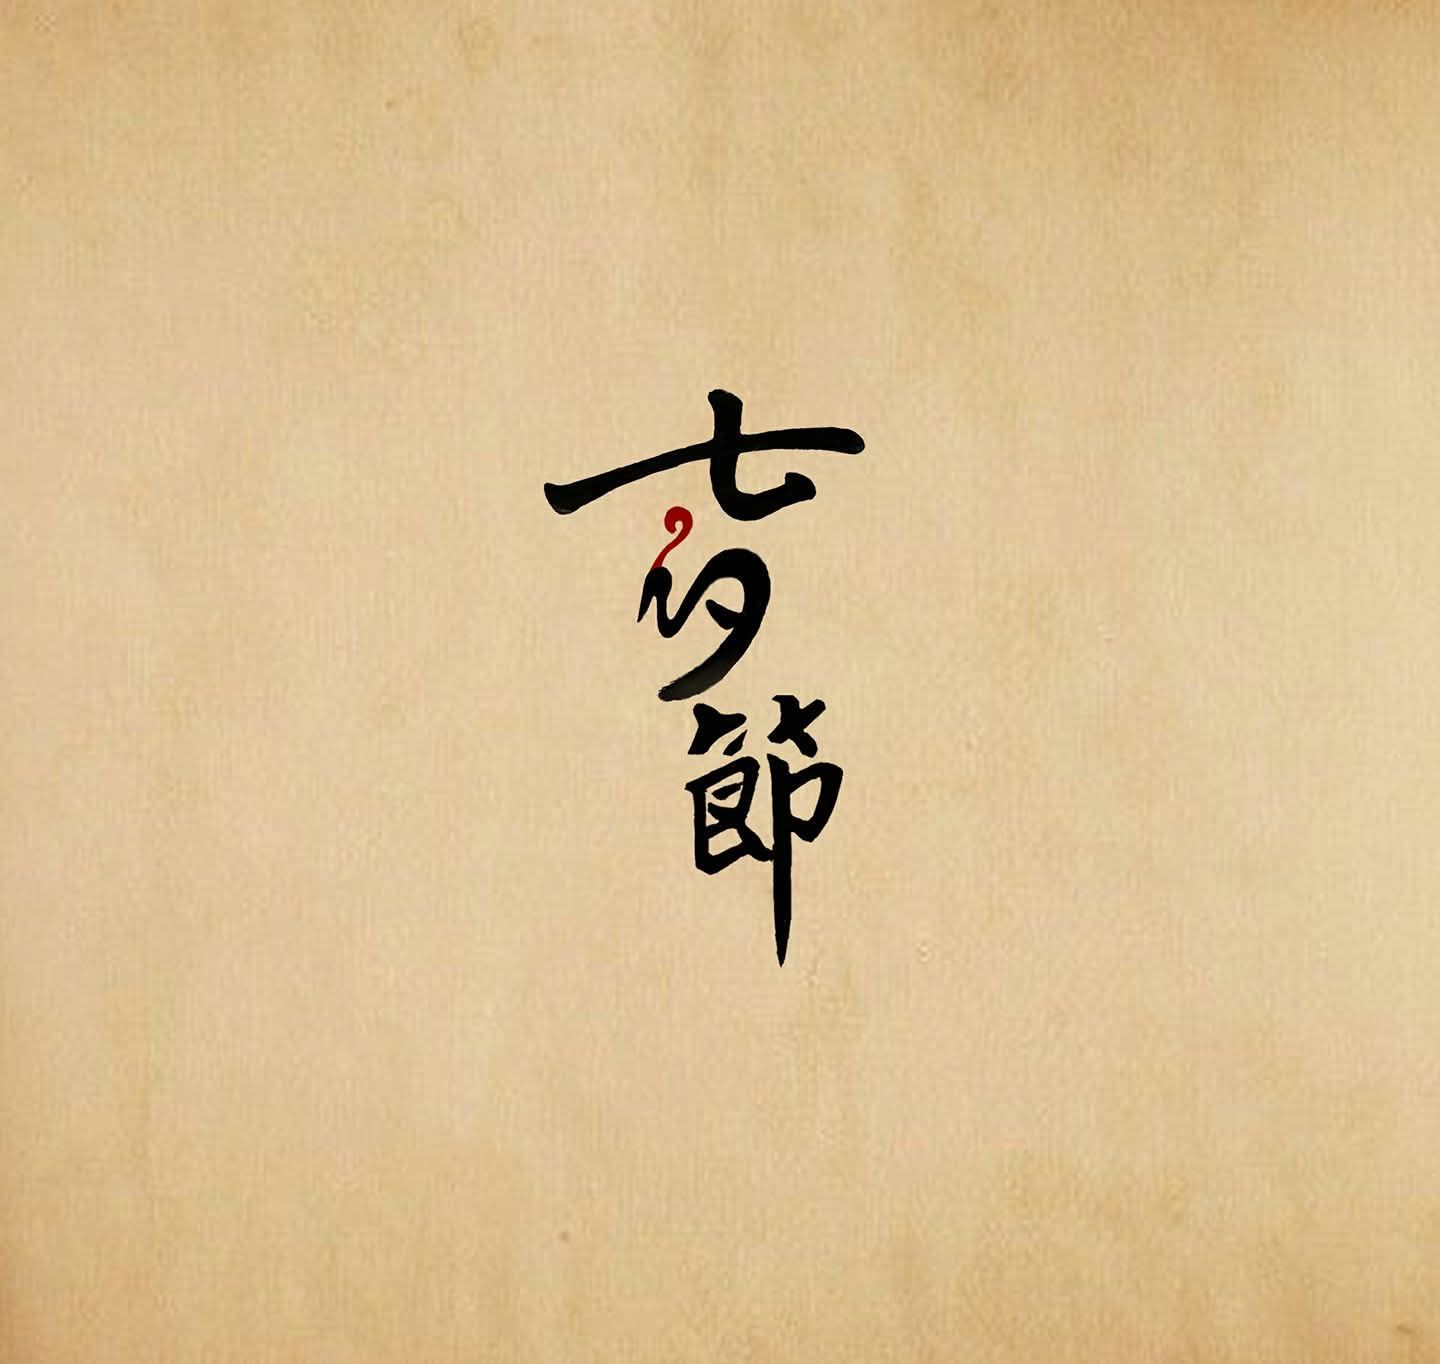 七夕節